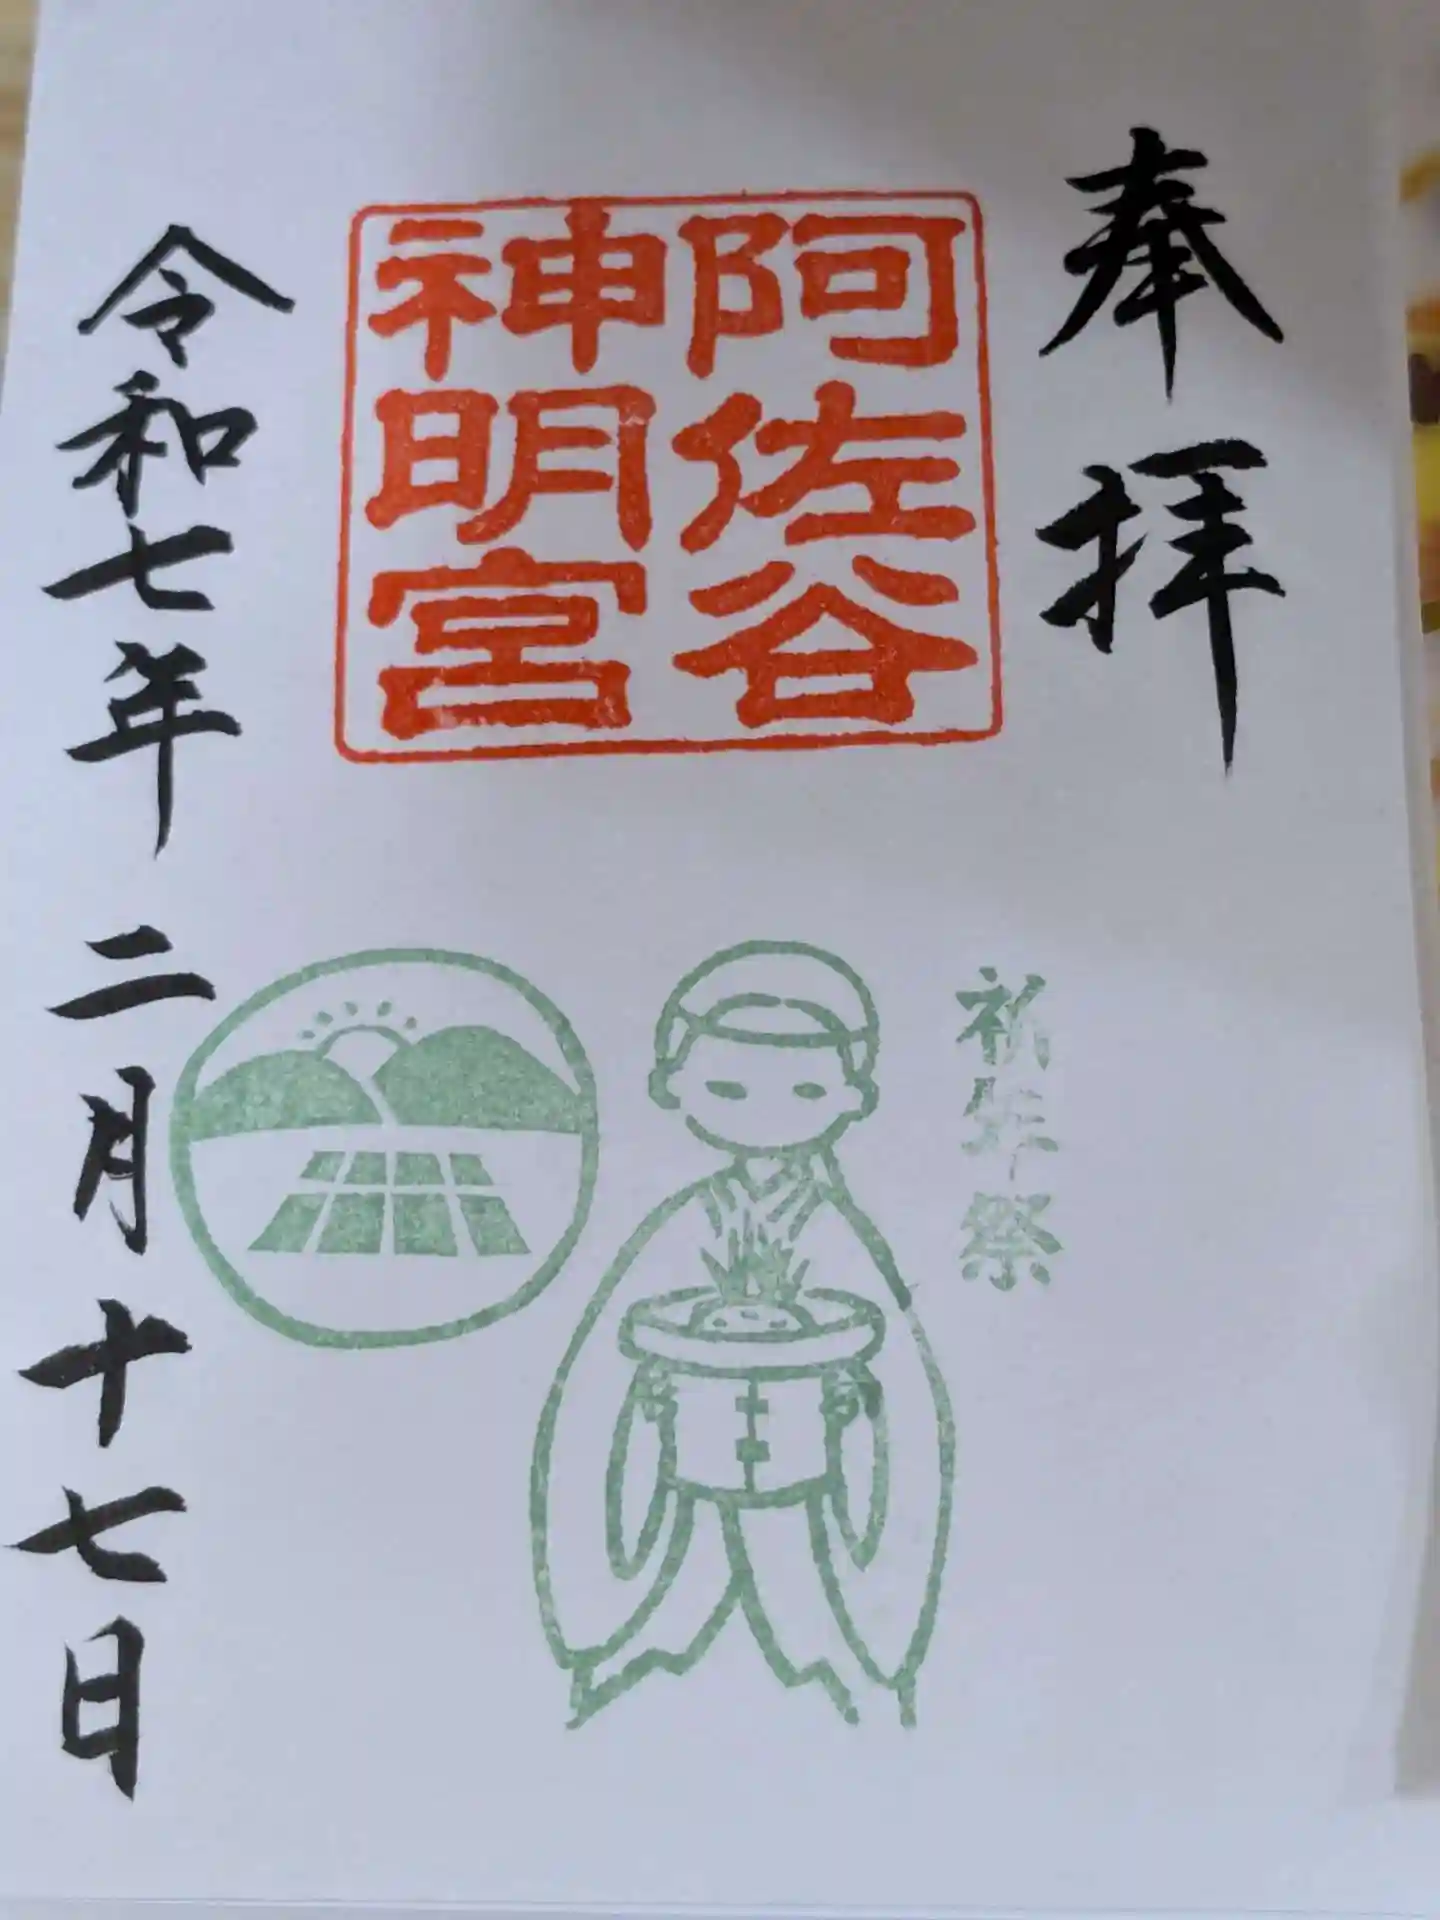 奉拝
阿佐谷
神明宮
祈年祭
令和七年二月十七日